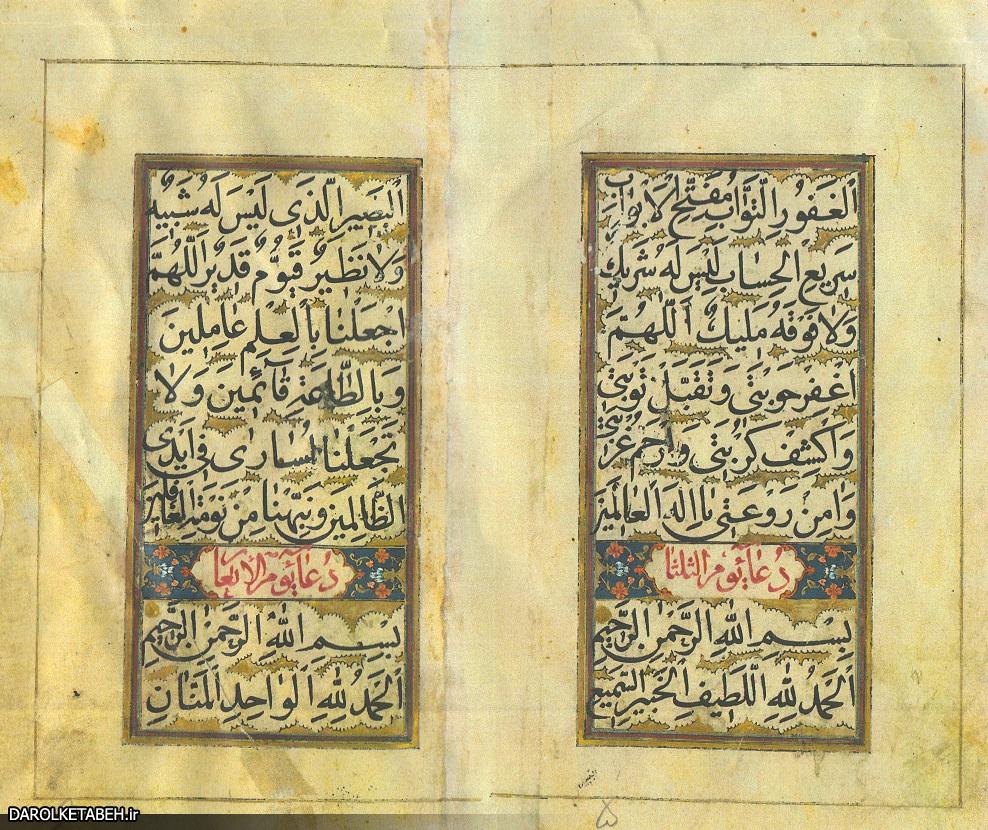 اَلْغَفُورِ التَّوَّابِ مُفَتِّحُ لْاَبْوَابِ
سَرِيعِ الْحِسَابِ لَيْسَ لَهُ شَرِيكٌ
وَلَا فَوْقَهُ مَلِيكٌ اَللّٰهُمَّ
اغْفِرْ حَوْبَتِي وَتَقَبَّلْ تَوْبَتِي
وَاكْشِفْ كَرُبْتَي وَارْحَمْ غُرْبَتِي
وَامِنْ رَوْعَتِي يَا اِلَهَ الْعَالَمِينَ
دُعَاءِ يَوْمِ الثلثا
بِسْمِ اللهِ الرَّحْمٰنِ الرَّحِيمِ
اَلْحَمْدُ لِلّٰهِ اللَّطِيفِ الْخَبِيرِ السَّمِيعِ
الْبَصِيرِ الَّذِي لَيْسَ لَهُ شَبِيهٌ
وَلَا نَظِيرٌ قَيُّومٌ قَدِيرٌ اَللّٰهُمَّ
اجْعَلْنَا بِالْعِلْمِ عَامِلِينَ
وَبِالطَّاعَةِ قَآئِمِينَ وَلَا
تَجْعَلْنَا اُسَارٰى فِي اَيْدِي
الظَّالِمِينَ وَنَبِّهْنَا مِنْ نَوْمَةِ الْغَافِلِينَ
دُعَاءِ يَوْمِ الْاربعا
بِسْمِ اللهِ الرَّحْمٰنِ الرَّحِيمِ
اَلْحَمْدُ لِلّٰهِ الْوَاحِدِ الْمَنَّانِ
۵
DAROLKETABEH.ir